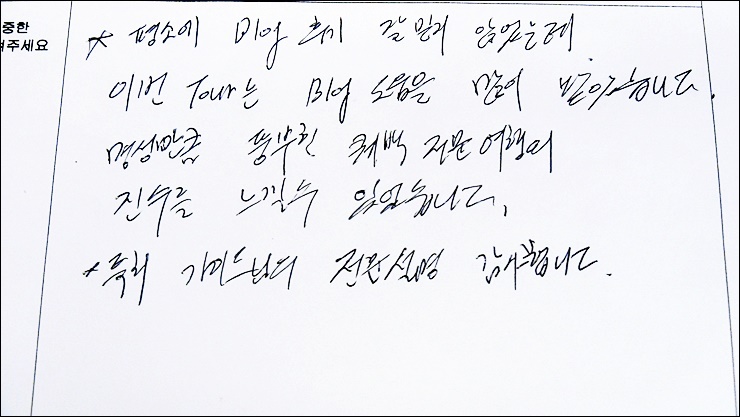 중한
주세요
* 평소에 후기 잘 믿지 않았는데
이번 Tour는 도움을 많이 받았습니다.
명성만큼 풍부한 전문 여행의
진수를 느낄수 있었습니다.
* 특히 가이드님의 전문설명 감사합니다.